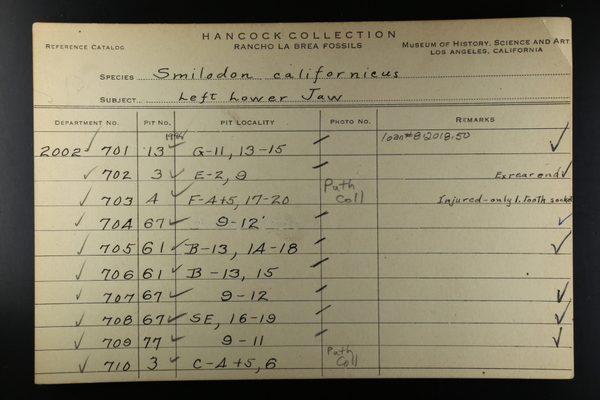 HANCOCK COLLECTION
REFERENCE CATALOG RANCHO LA BREA FOSSILS MUSEUM OF HISTORY, SCIENCE AND ART
LOS ANGELES, CALIFORNIA
SPECIES Smilodon californicus
SUBJECT Left Lower Jaw
DEPARTMENT NO. PIT NO. PIT LOCALITY PHOTO NO. REMARKS
2002 701 13 G-11, 13-15 loan#8.2018.50
702 3 E-2, 9 Ex rear end
703 4 F-4+5, 17-20 Path Coll Injured-only 1. tooth socket
704 67 9-12
705 61 B-13, 14-18
706 61 B-13, 15
707 67 9-12
708 67 SE, 16-19
709 77 9-11
710 3 C-4+5, 6 Path Coll